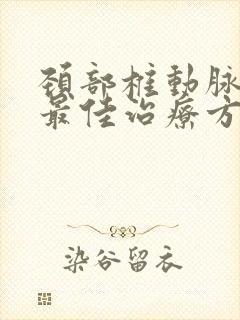 頚部椎動脉
最佳治療方
染谷留衣